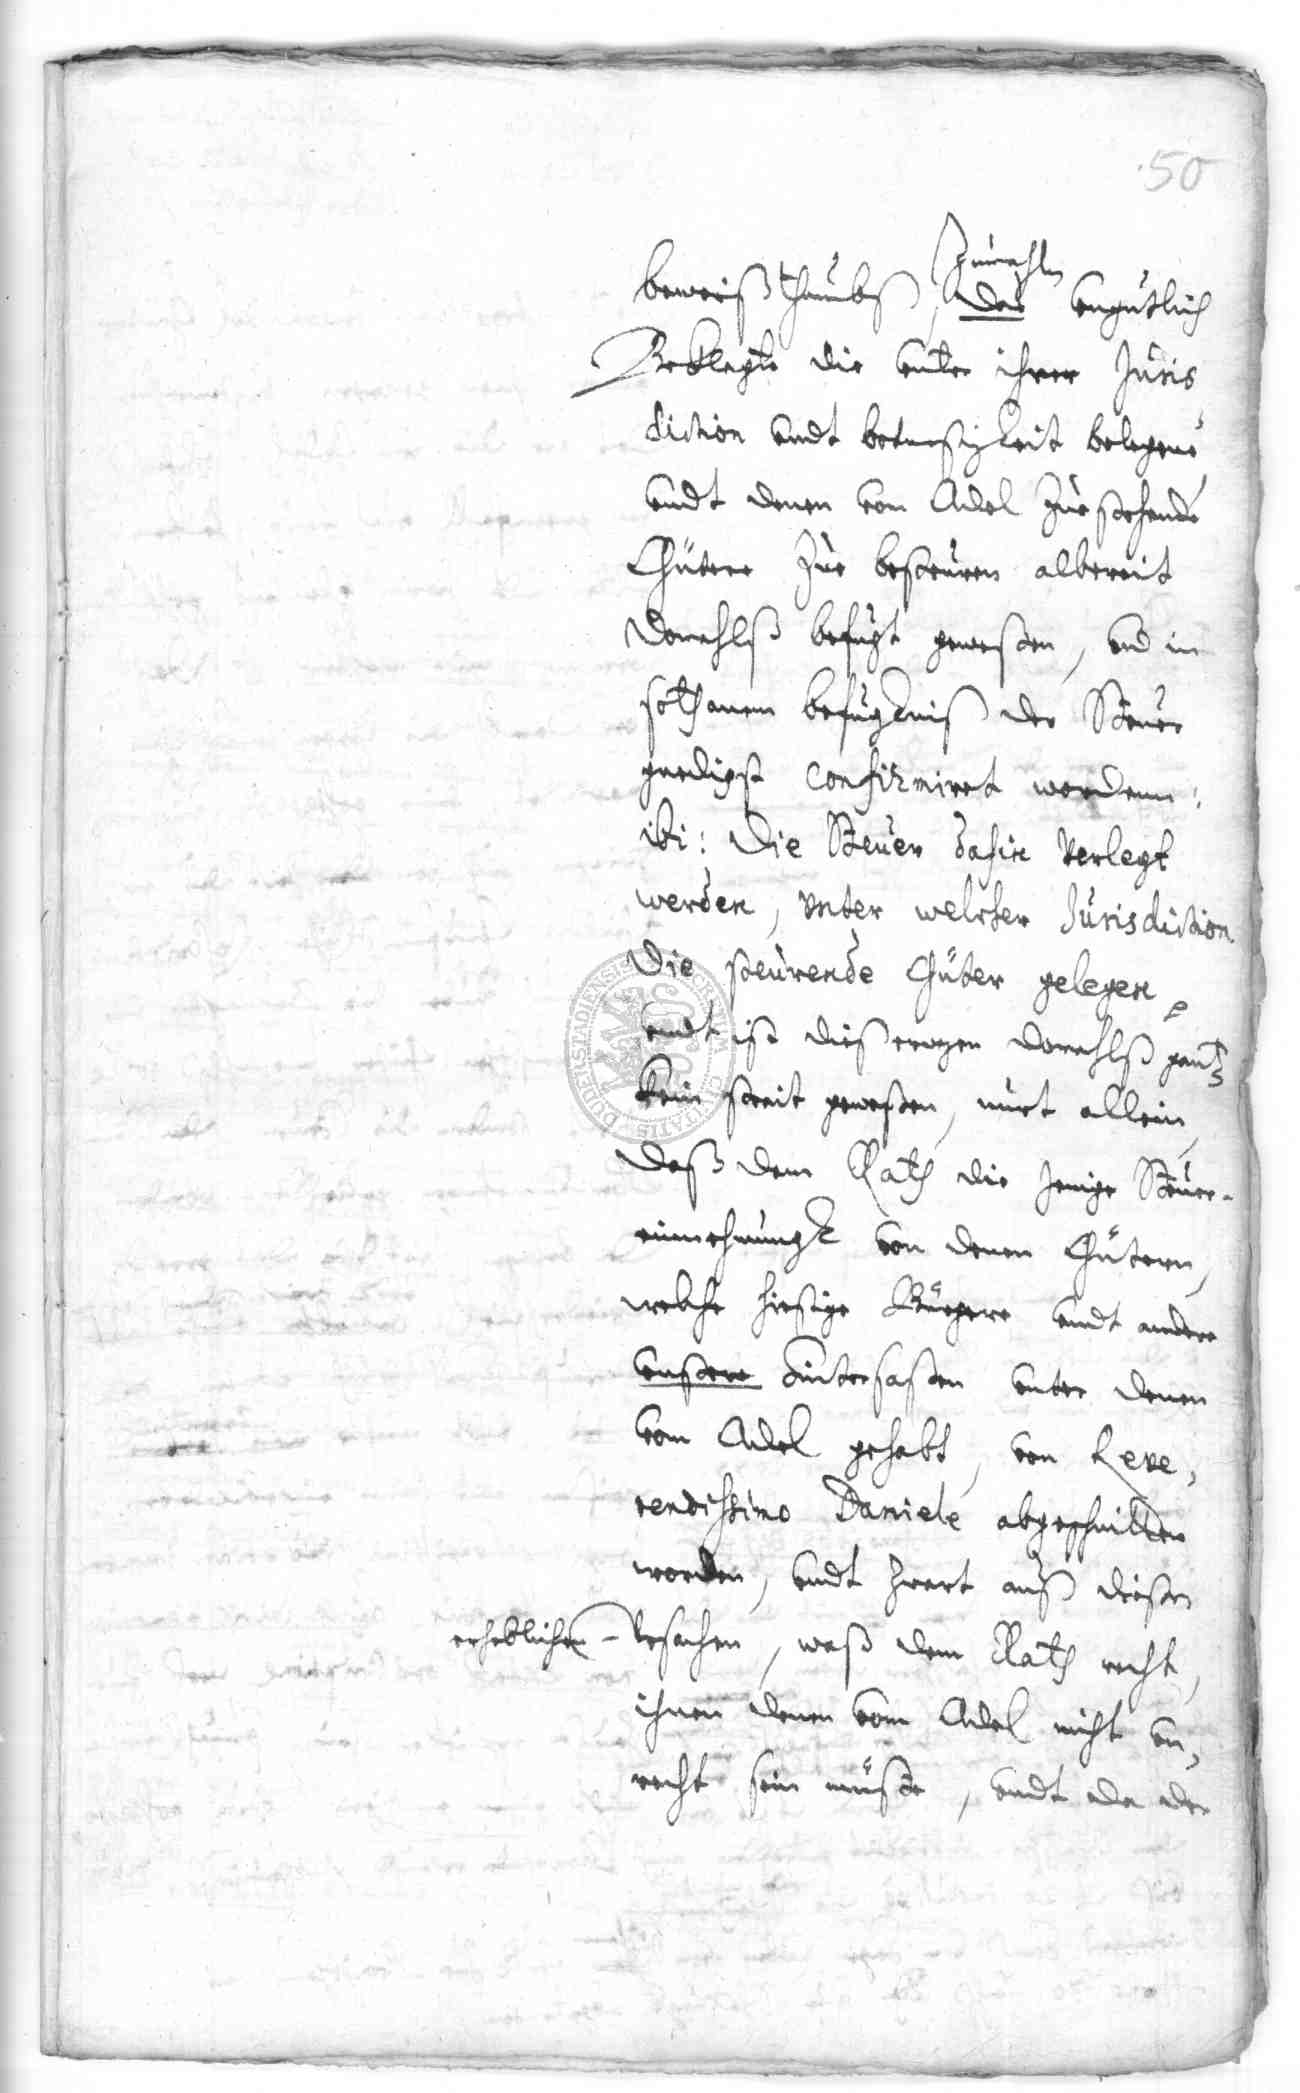 50
zumahln
beweiß thumbs, der ungütlich
Beklagte die unter ihrer Juris
diction undt botmesigkeit belegene
undt denen von Adel zustehende
Gütere zue besteuren albereit
domahlß befugt gewesen, und in
sothanem befugknis der Steuer
gnedigst confirmiret worden:
ibi: Die Steuer dahin verlegt
werden, unter welcher Jurisdiction
die steurende Güter gelegen
undt ist dieserwegen domahlß gantz
kein streit gewesen, nurt allein,
daß dem Rath die jenige Steuer-
einnehmungk von denen Gütern,
welche hiesige Bürgere undt andere
unsere Hintersaßen unter denen
vom Adel gehabt, von Reve,
rendissimo Daniele abgeschnitten
worden, undt zwart auß diesen
erheblichen - Ursachen, waß dem Rath recht,
ihnen denen vom Adel nicht un,
recht sein müste, undt da der
DUDERSTADIENSIS CIVITATIS